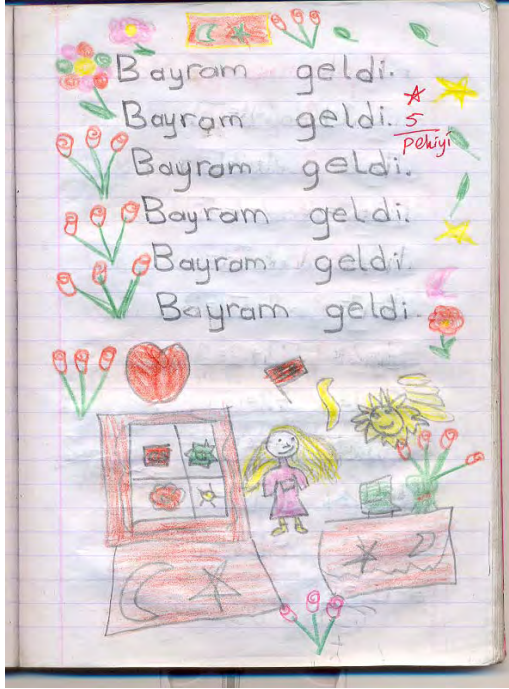 Bayram geldi.
Bayram geldi.
5
pekiyi
Bayram geldi.
Bayram geldi.
Bayram geldi.
Bayram geldi.